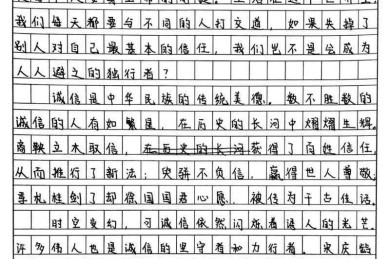 我们每天都要与不同的人打交道，如果失掉了
别人对自己最基本的信任，我们岂不是会成为
人人避之的独行者？
诚信是中华民族的传统美德。数不胜数的
诚信的人有如繁星，在历史的长河中熠熠生辉。
商鞅立木取信，在历史的长河获得了百姓信任，
从而推行了新法；史骈不负信，赢得世人尊敬；
季札挂剑了却徐国国君心愿，被传为千古佳话。
时空变幻，可诚信依然闪烁着诱人的光芒。
许多伟人也是诚信的坚守者和力行者。宋庆龄